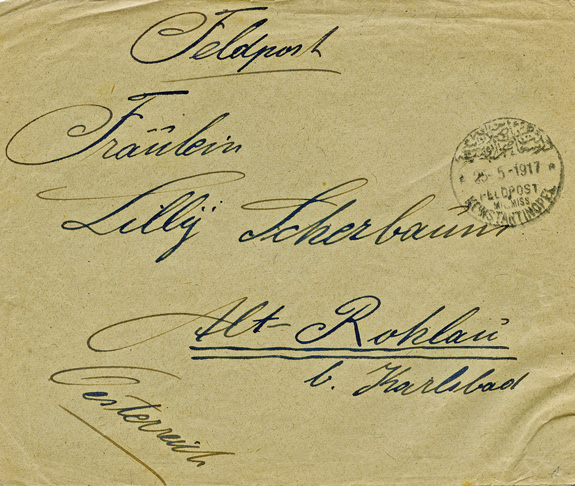 Feldpost
Fräulein
Lilly Scherbaum
Alt-Rohlau
b. Karlsbad
Oesterreich
* 25-5-1917 *
FELDPOST
MIL. MISS
KONSTANTINOPEL